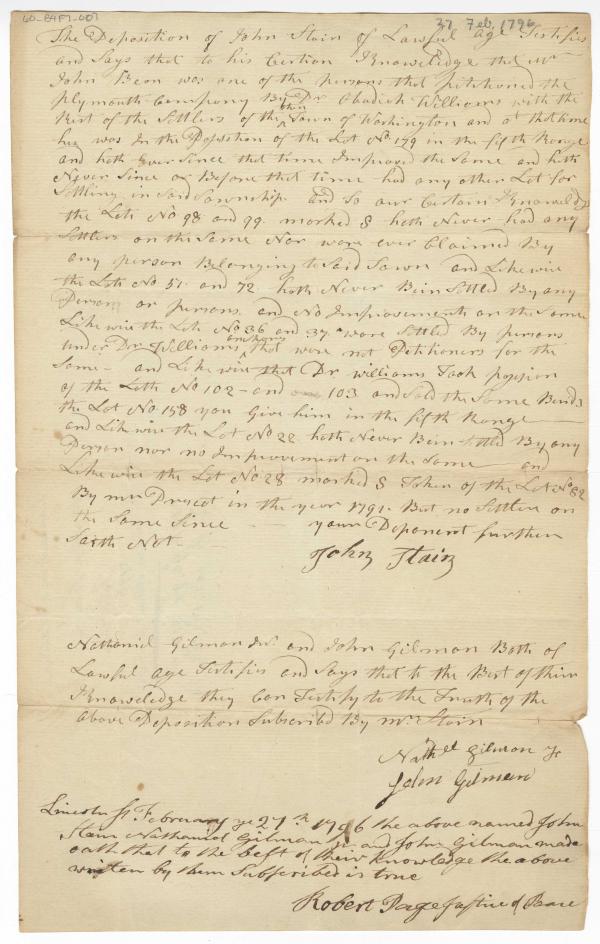 LO-E4F7-001
27 Feb. 1796
The Deposition of John Stain of Lawful age Testifies
and Says that to his Certion Knowledge that Mr
John Bean was one of the persons that petitioned the
plymouth Company By Dr Obadiah Williams with the
Rest of the Settlers of the then Town of Washington and at that time
hee was In the Poposition of the Lot No. 179 in the fifth Range
and hath Ever Since that time Improved the Same and hath
Never Since or Before that time had any other Lot for
Settling in Said Township and to our Certain Knowledg
the Lots No 98 and 99 marked S hath Never had any
Settlers on the Same Nor ware ever Claimed By
any person Belonging to Said Town and Likewise
the Lots No 51 and 72 hath Never Bein Settled By any
Person or persons and No Improvements on the Same
Likewise the Lots No 36 and 37 ware Settled By persons
under Dr Williams that ware not Petitioners for the
Same - and Likewise that Dr Williams Took possion
of the Loth No 102 - and 103 and Sold the Same Besids
the Lot No 158 you Give him in the fifth Range
and Likewise the Lot No 22 hath Never Bein Settled By any
Person nor no Improvement on the Same and
Likewise the Lot No 28 marked S Taken of the Lot No 82
By mr Prescot in the year 1791. But no Settler on
the Same Since your Deponent further
Saith Not
John Stain
Nathaniel Gilman Jur. and John Gilman Both of
Lawful age Testifis and Says that to the Best of thim
Knowledge they Can Testify to the Truth of the
above Deposition Subscribed By mr. Stain
Nathll Gilman Jr
John Gilman
Lincoln ss February ye 27th 1796 the above named John
Stain Nathaniel Gilman Jr. and John Gilman made
oath that to the best of their knowledge the above
written by them Subscribed is true
Robert Page Justice of Peace